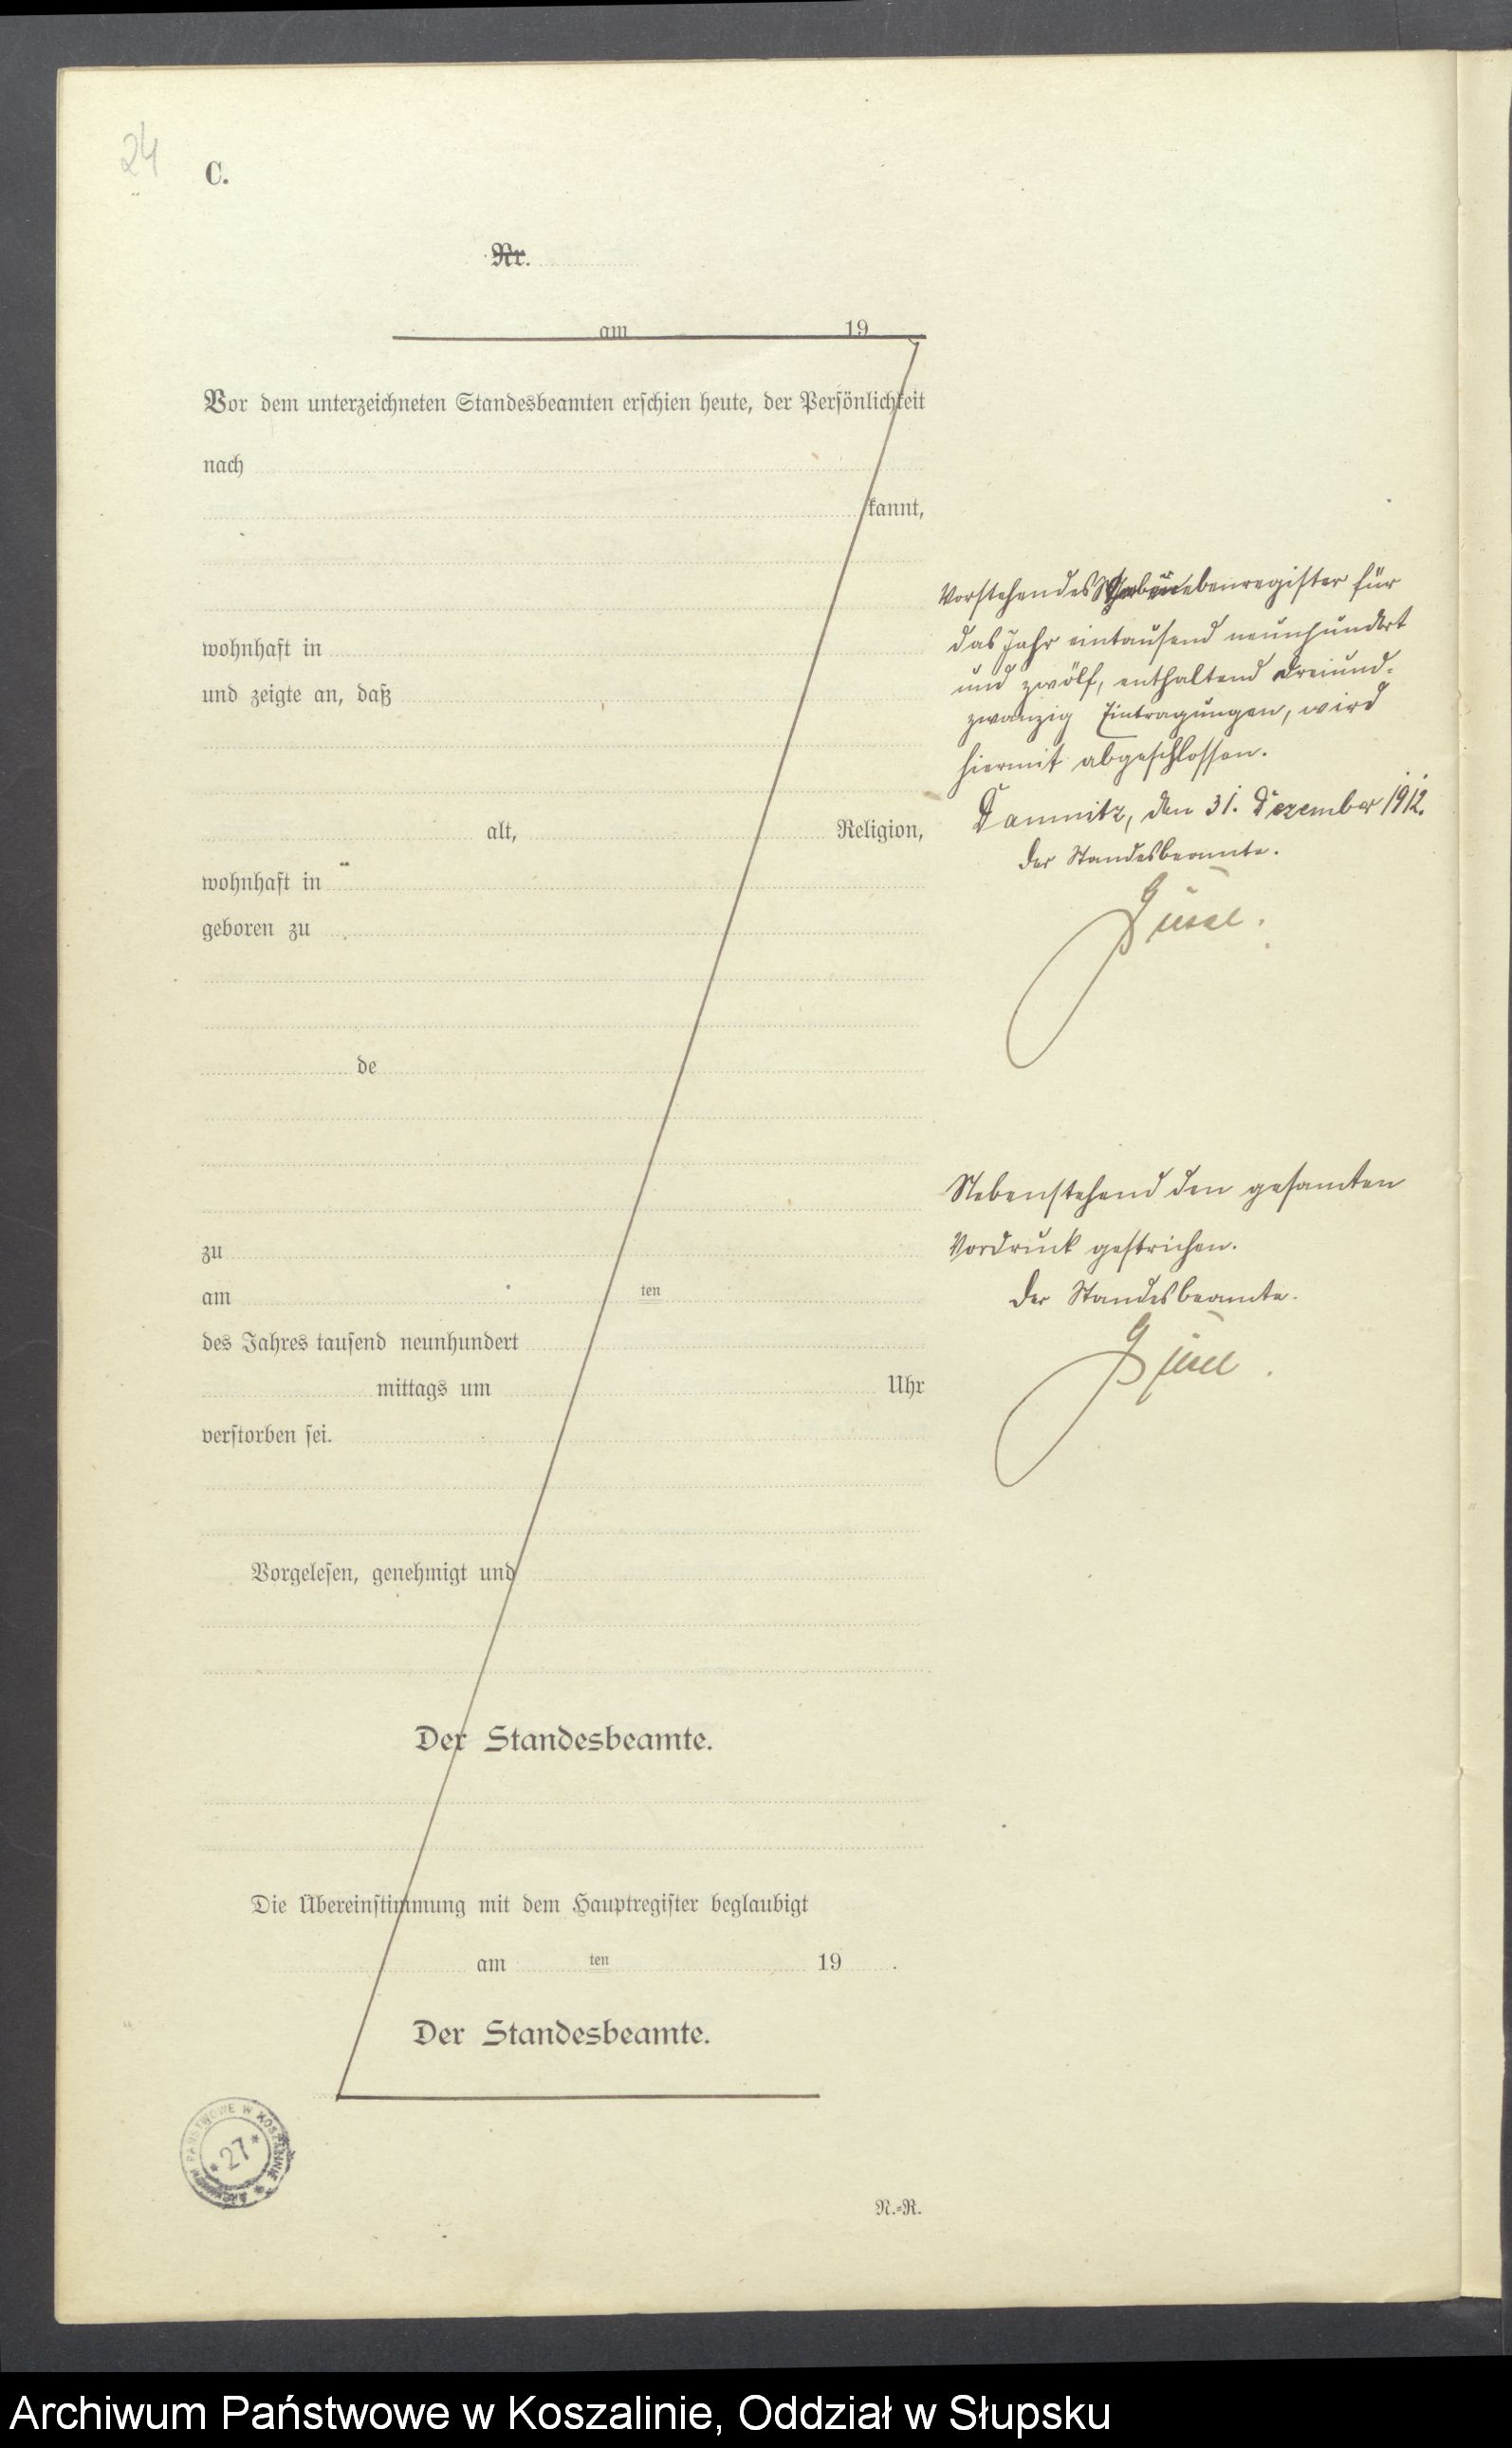 24
C.
Nr.
am 19
Vor dem unterzeichneten Standesbeamten erschien heute, der Persönlichkeit
nach
kannt,
wohnhaft in
und zeigte an, daß
alt, Religion,
wohnhaft in
geboren zu
de
zu
am ten
des Jahres tausend neunhundert
mittags um Uhr
verstorben sei.
Vorgelesen, genehmigt und
Der Standesbeamte.
Die Übereinstimmung mit dem Hauptregister beglaubigt
am ten 19 .
Der Standesbeamte.
N.=R.
Vorstehendes ebenregister für
das Jahr eintausend neunhundert
und zwölf, enthaltend dreiund=
zwanzig Eintragungen, wird
hiermit abgeschlossen.
Damnitz, den 31. Dezember 1912.
Der Standesbeamte.
Nebenstehend den gesamten
Vordruck gestrichen.
Der Standesbeamte.
ARCHIWUM PAŃSTWOWE W KOSZALINIE
* 27 *
Archiwum Państwowe w Koszalinie, Oddział w Słupsku